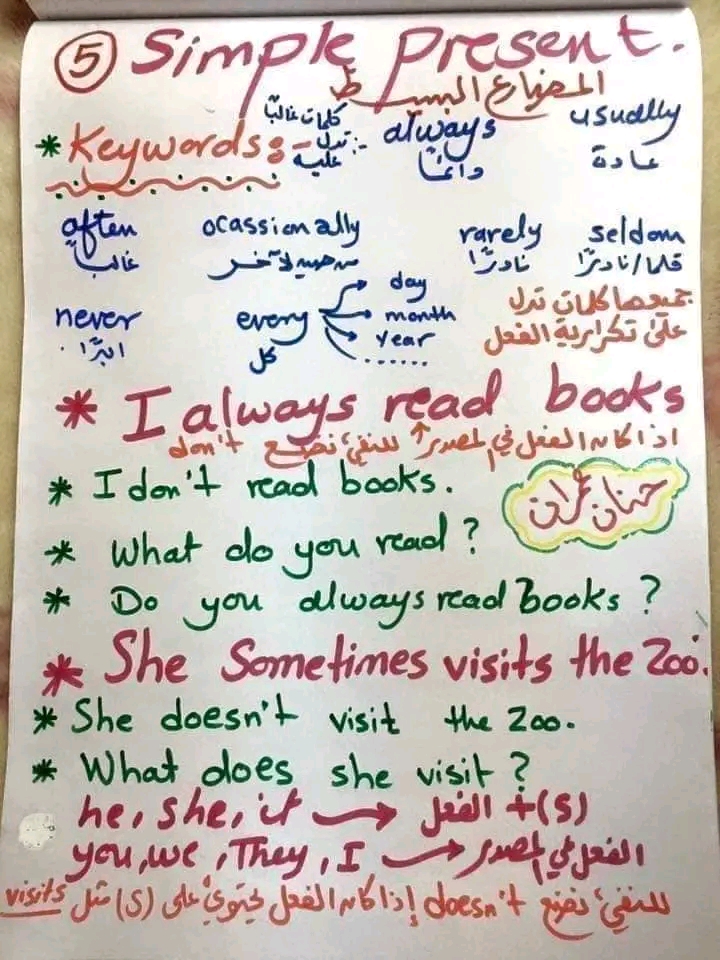 5 Simple Present.
المضارع البسيط
* Keywords: كلمات غالبًا تدل عليه :- always usually
دائمًا عادة
often ocassionally rarely seldom
غالبًا من حين لآخر نادرًا قلما/نادرًا
never every day month year ......
ابدًا كل
جميعها كلمات تدل
على تكرارية الفعل
* I always read books
اذا كان الفعل في المصدر للنفي نضع don't
* I don't read books.
حنان عمران
* What do you read?
* Do you always read books?
* She Sometimes visits the Zoo.
* She doesn't visit the Zoo.
* What does she visit?
he, she, it → الفعل + (S)
you, we, They, I → الفعل في المصدر
للنفي نضع doesn't إذا كان الفعل يحتوي على (S) مثل visits